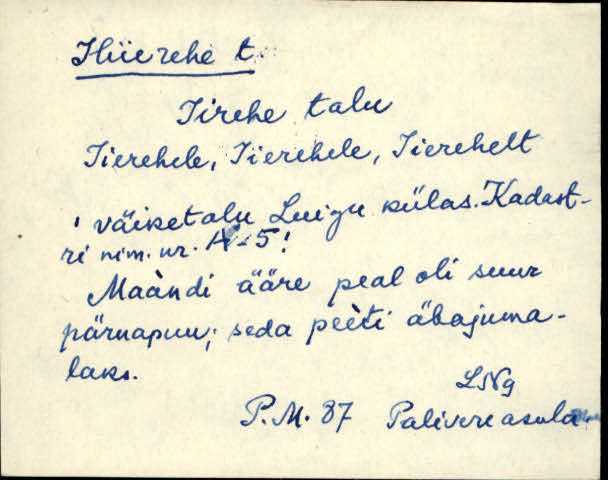 Hiierehe t.
Iirehe talu
Iierehele, Iierehele, Iierehelt
' väiketalu Luigu külas. Kadast-
ri nim. nr. A-5!
Maàndi ääre peal oli suur
pärnapuu; seda peèti äbajuma-
laks.
LNg
P.M. 87 Palivere asula